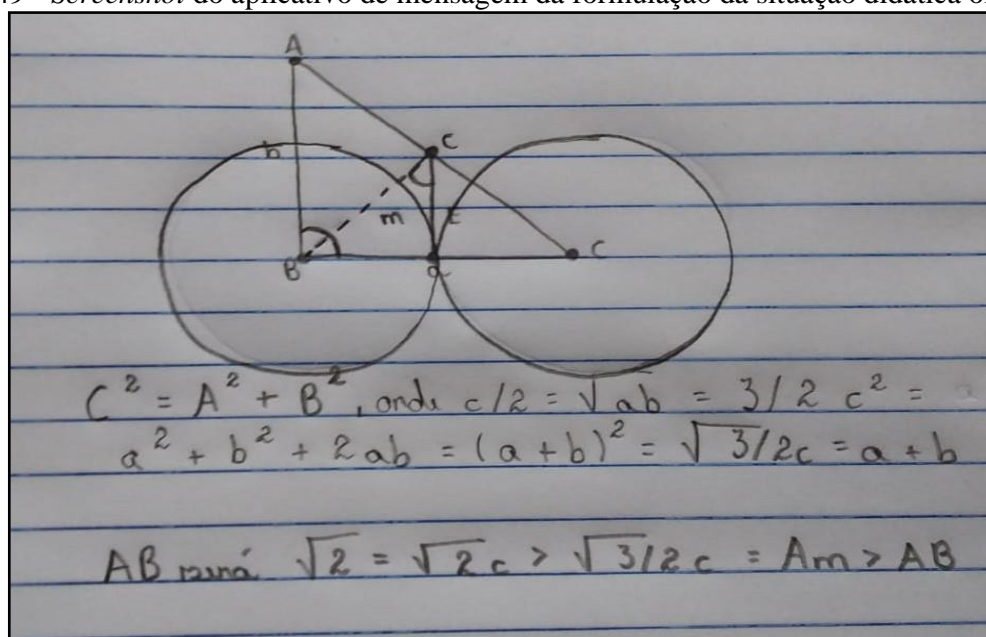 49 - Screenshot do aplicativo de mensagem da formulação da situação didática
A
b
C
m
E
B
C
C² = A² + B², onde c/2 = √ab = 3/2 c² =
a² + b² + 2ab = (a + b)² = √3/2c = a + b
AB será √2 = √2c > √3/2c = Am > AB